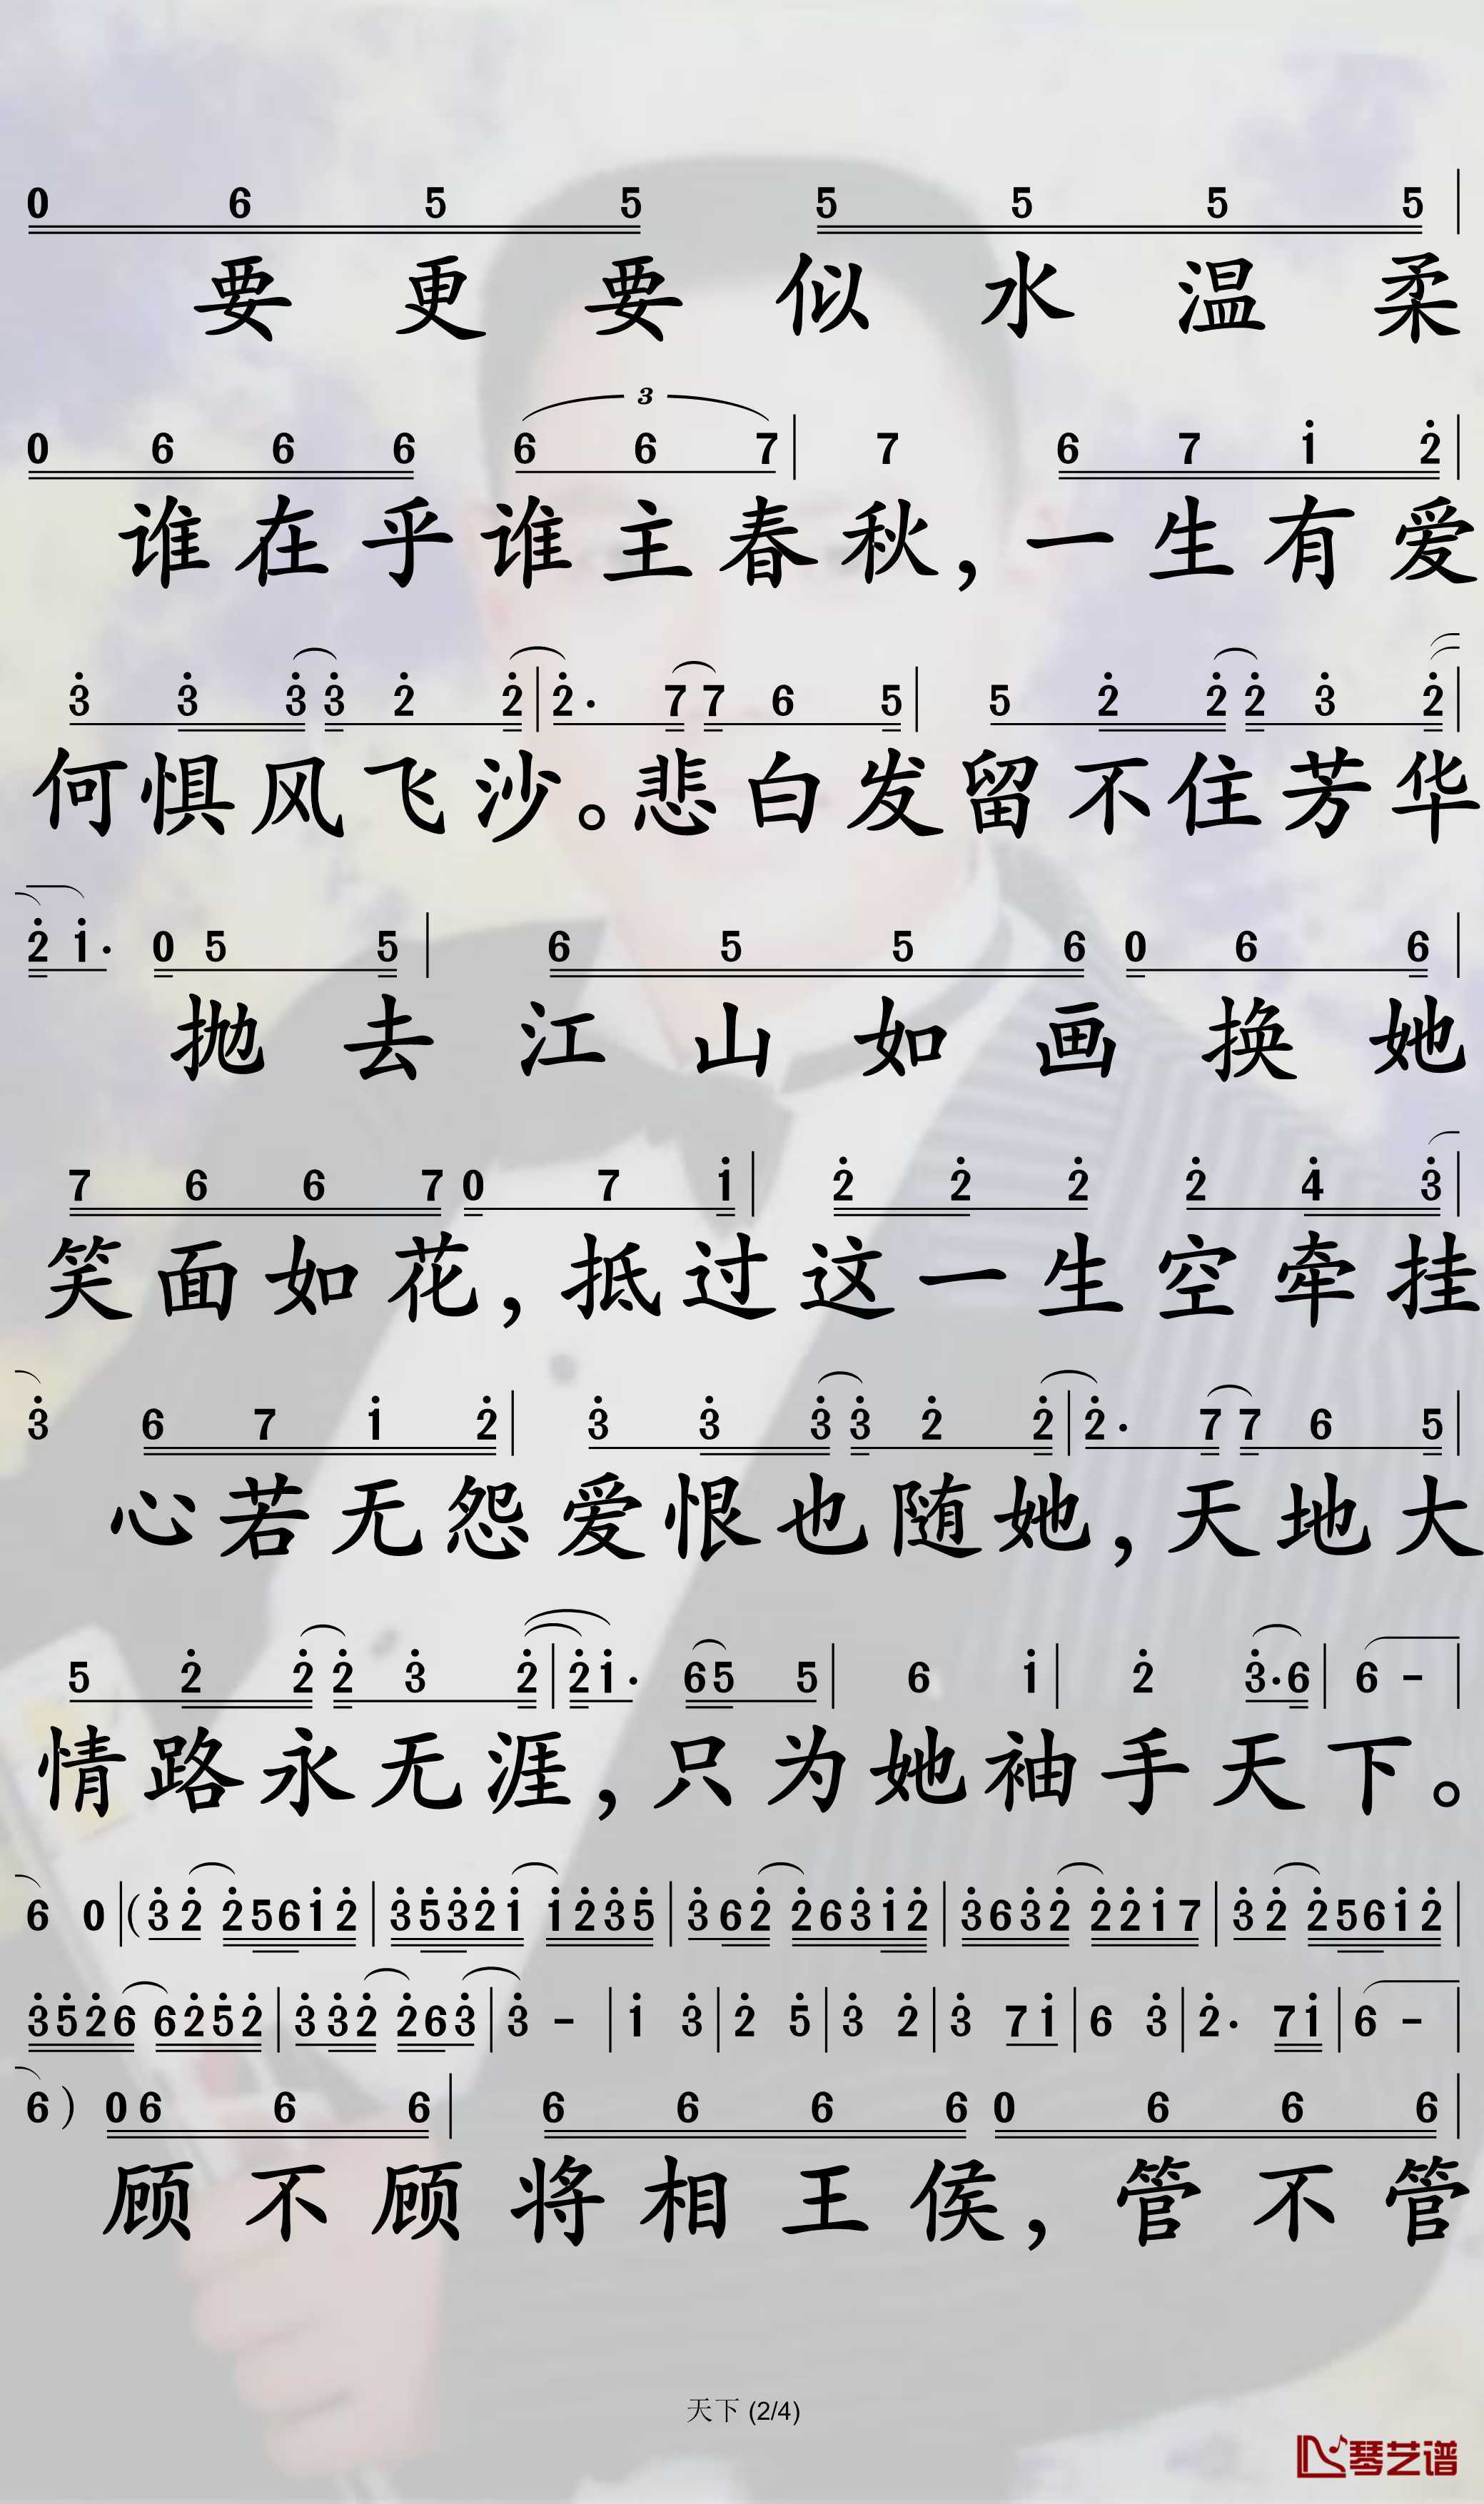 0 6 5 5 5 5 5 5
要更要似水温柔
0 6 6 6 6 6 7 | 7 6 7 1̇ 2̇ |
3
谁在乎谁主春秋，一生有爱
3̇ 3̇ 3̇ 3̇ 2̇ 2̇ | 2̇· 7 7 6 5 | 5 2̇ 2̇ 2̇ 3̇ 2̇ |
何惧风飞沙。悲白发留不住芳华
2̇ 1̇· 0 5 5 | 6 5 5 6 0 6 6 |
抛去江山如画换她
7 6 6 7 0 7 1̇ | 2̇ 2̇ 2̇ 2̇ 4̇ 3̇ |
笑面如花，抵过这一生空牵挂
3̇ 6 7 1̇ 2̇ | 3̇ 3̇ 3̇ 3̇ 2̇ 2̇ | 2̇· 7 7 6 5 |
心若无怨爱恨也随她，天地大
5 2̇ 2̇ 2̇ 3̇ 2̇ | 2̇ 1̇· 6 5 5 | 6 1̇ | 2̇ 3̇· 6 | 6 - |
情路永无涯，只为她袖手天下。
6 0 | ( 3̇ 2̇ 2̇ 5 6 1̇ 2̇ | 3̇ 5̇ 3̇ 2̇ 1̇ 1̇ 2̇ 3̇ 5̇ | 3̇ 6 2̇ 2̇ 6 3̇ 1̇ 2̇ | 3̇ 6 3̇ 2̇ 2̇ 2̇ 1̇ 7 | 3̇ 2̇ 2̇ 5 6 1̇ 2̇ |
3̇ 5̇ 2̇ 6 6 2̇ 5̇ 2̇ | 3̇ 3̇ 2̇ 2̇ 6 3̇ | 3̇ - | 1̇ 3̇ | 2̇ 5̇ | 3̇ 2̇ | 3̇ 7 1̇ | 6 3̇ | 2̇· 7 1̇ | 6 - |
6 ) 0 6 6 6 | 6 6 6 6 0 6 6 6 |
顾不顾将相王侯，管不管
天下 (2/4)
琴艺谱